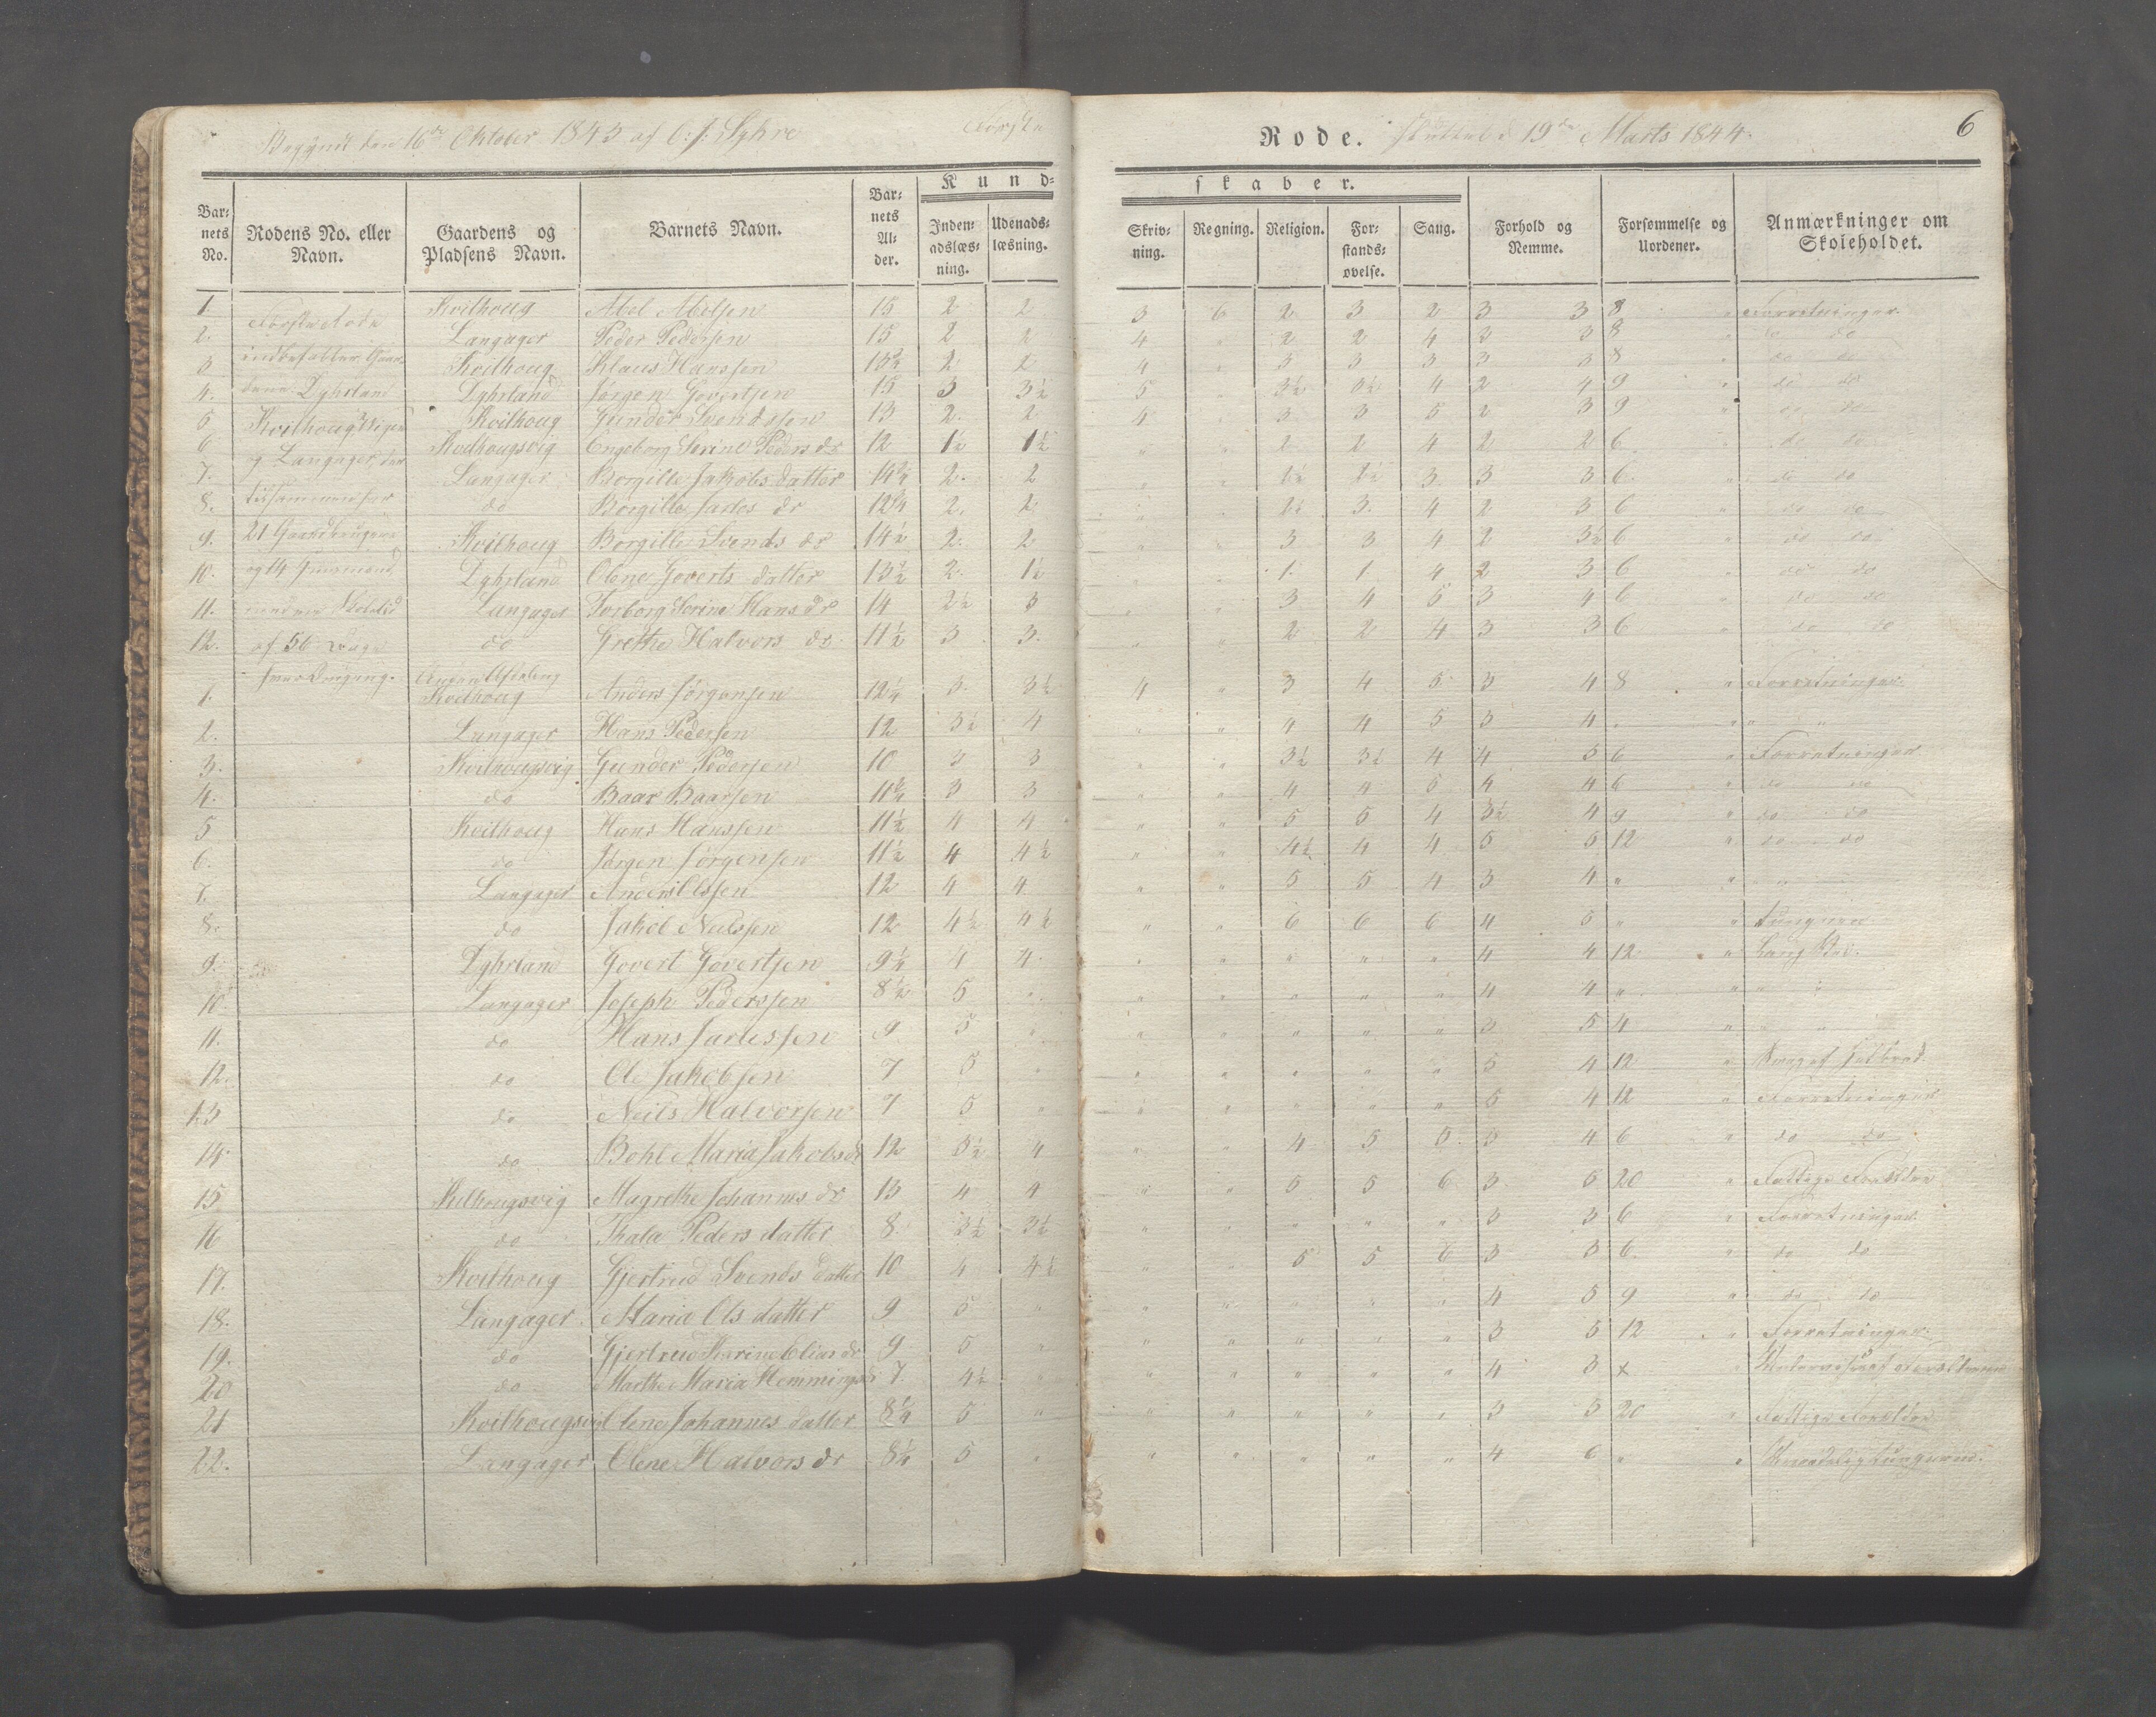 Begyndt den 16de Oktober 1843 af O: J: Syhre Første
Rode. sluttet d 19de Marts 1844. 6
Kundskaber.
Barnets No. Rodens No. eller Navn. Gaardens og Pladsens Navn. Barnets Navn. Barnets Alder. Indenadslæsning. Udenadslæsning. Skrivning. Regning. Religion. Forstandsøvelse. Sang. Forhold og Nemme. Forsømmelse og Uordener. Anmærkninger om Skoleholdet.
Første Rode
indbefatter Gaardene Dyhrland
Kvilhoug
og Langager, der
tilsammen har
21
og 14
af 56 Dage
hver Omgang.
1 Kvilhoug Abel Abelsen 15 2 2 3 6 2 3 2 3 3 8 " Forretninger.
2. Langager Peder Pedersen 15 2 2 4 " 2 2 4 3 3 8 " do do
3 Kvilhoug Klaus Hanssen 13 3/4 2 2 4 " 3 3 3 3 3 8 " do do
4. Dyhrland Jørgen Govertsen 15 3 3½ 5 " 3½ 3½ 4 2 4 9 " do do
5 Kvilhoug Gunder Svendssen 13 2 2 4 " 3 3 5 2 3 9 " do do
6 Kvilhougsvig Engeborg Serine Peders dr 12 1½ 1½ " " 2 2 4 2 2 6 " do do
7. Langager Borgille Jakobs datter 14 3/4 2 2 " " 1½ 1½ 3 3 3 6 " do do
8. do Borgille Jarles dr 12 3/4 2. 2 " " 1½ 3 4 2 3 6 " do do
9. Kvilhoug Borgille Svends dr 14½ 2 2 " " 3 3 4 2 3½ 6 " do do
10. Dyhrland Olene Joverts datter 13½ 2 1½ " " 1 1 4 2 3 6 " do do
11. Langager Torborg Serine Hans dr 14 2½ 3 " " 3 4 5 3 4 6 " do do
12. do Grethe Halvors dr 11½ 3 3. " " 2 2 4 3 3 6 " do do
Anden Afdeling
1. Kvilhoug Anders Jörgensen 12¼ 3 3½ 4 " 3 4 5 3 4 8 " Forretninger.
2. Langager Hans Pedersen 12 3½ 4 " " 4 4 5 3 4 " " " "
3. Kvilhougsvig Gunder Pedersen 10 3 3 " " 3½ 3½ 4 4 3 6 " Forretninger
4. do Baar Baarsen 11 3/4 3 3 " " 4 4 5 4 4 6 " do do
5 Kvilhoug Hans Hanssen 11½ 4 4 " " 5 5 4 3½ 4 9 " do do
6. do Jørgen Jörgensen 11½ 4 4½ " " 4½ 4 4 5 5 12 " do do
7. Langager Anders Olssen 12 4 4 " " 5 5 4 3 4 " " " "
8. do Jakob Neilssen 12 4½ 4½ " " 6 6 6 4 5 " " tungnem
9. Dyhrland Govert Govertsen 9¼ 4 4 " " " " " 4 4 12 " Lang Vei.
10. Langager Joseph Pederssen 8½ 5 " " " " " " 4 4 " " " "
11. do Hans Jarlessen 9 5 " " " " " " 3 5 4 " " "
12. do Ole Jakobsen 7 5 " " " " " " 5 4 12 "
13 do Neils Halvorsen 7 5 " " " " " " 5 4 12 " Forretninger
14. do Bohl Maria Jakobs dr 12 3½ 4 " " 4 5 5 3 4 6 " do do
15 Kvilhougsvig Magrethe Johannis dr 13 4 4 " " 5 5 6 3 5 20 " Fattige Foreldre
16 do Thala Peders datter 8 3½ 3½ " " " " " 3 3 6 " Forretninger.
17. Kvilhoug Gjertrud Svends datter 10 4 4½ " " 5 5 6 3 3 6 " do do
18. Langager Maria Ols datter 9 5 " " " " " " 4 5 9 " do do
19. do Gjertrud Karine Elias dr 9 5 " " " " " " 3 5 12 " Forretninger.
20 do Marthe Maria Hemmings dr 7. 4½ " " " " " " 4 3 x "
21 Kvilhougsvig Olene Johannes datter 8¼ 5 " " " " " " 3 5 20 " Fattige Foreldre
22. Langager Olene Halvors dr 8¼ 5 " " " " " " 4 6 " " tungnem.